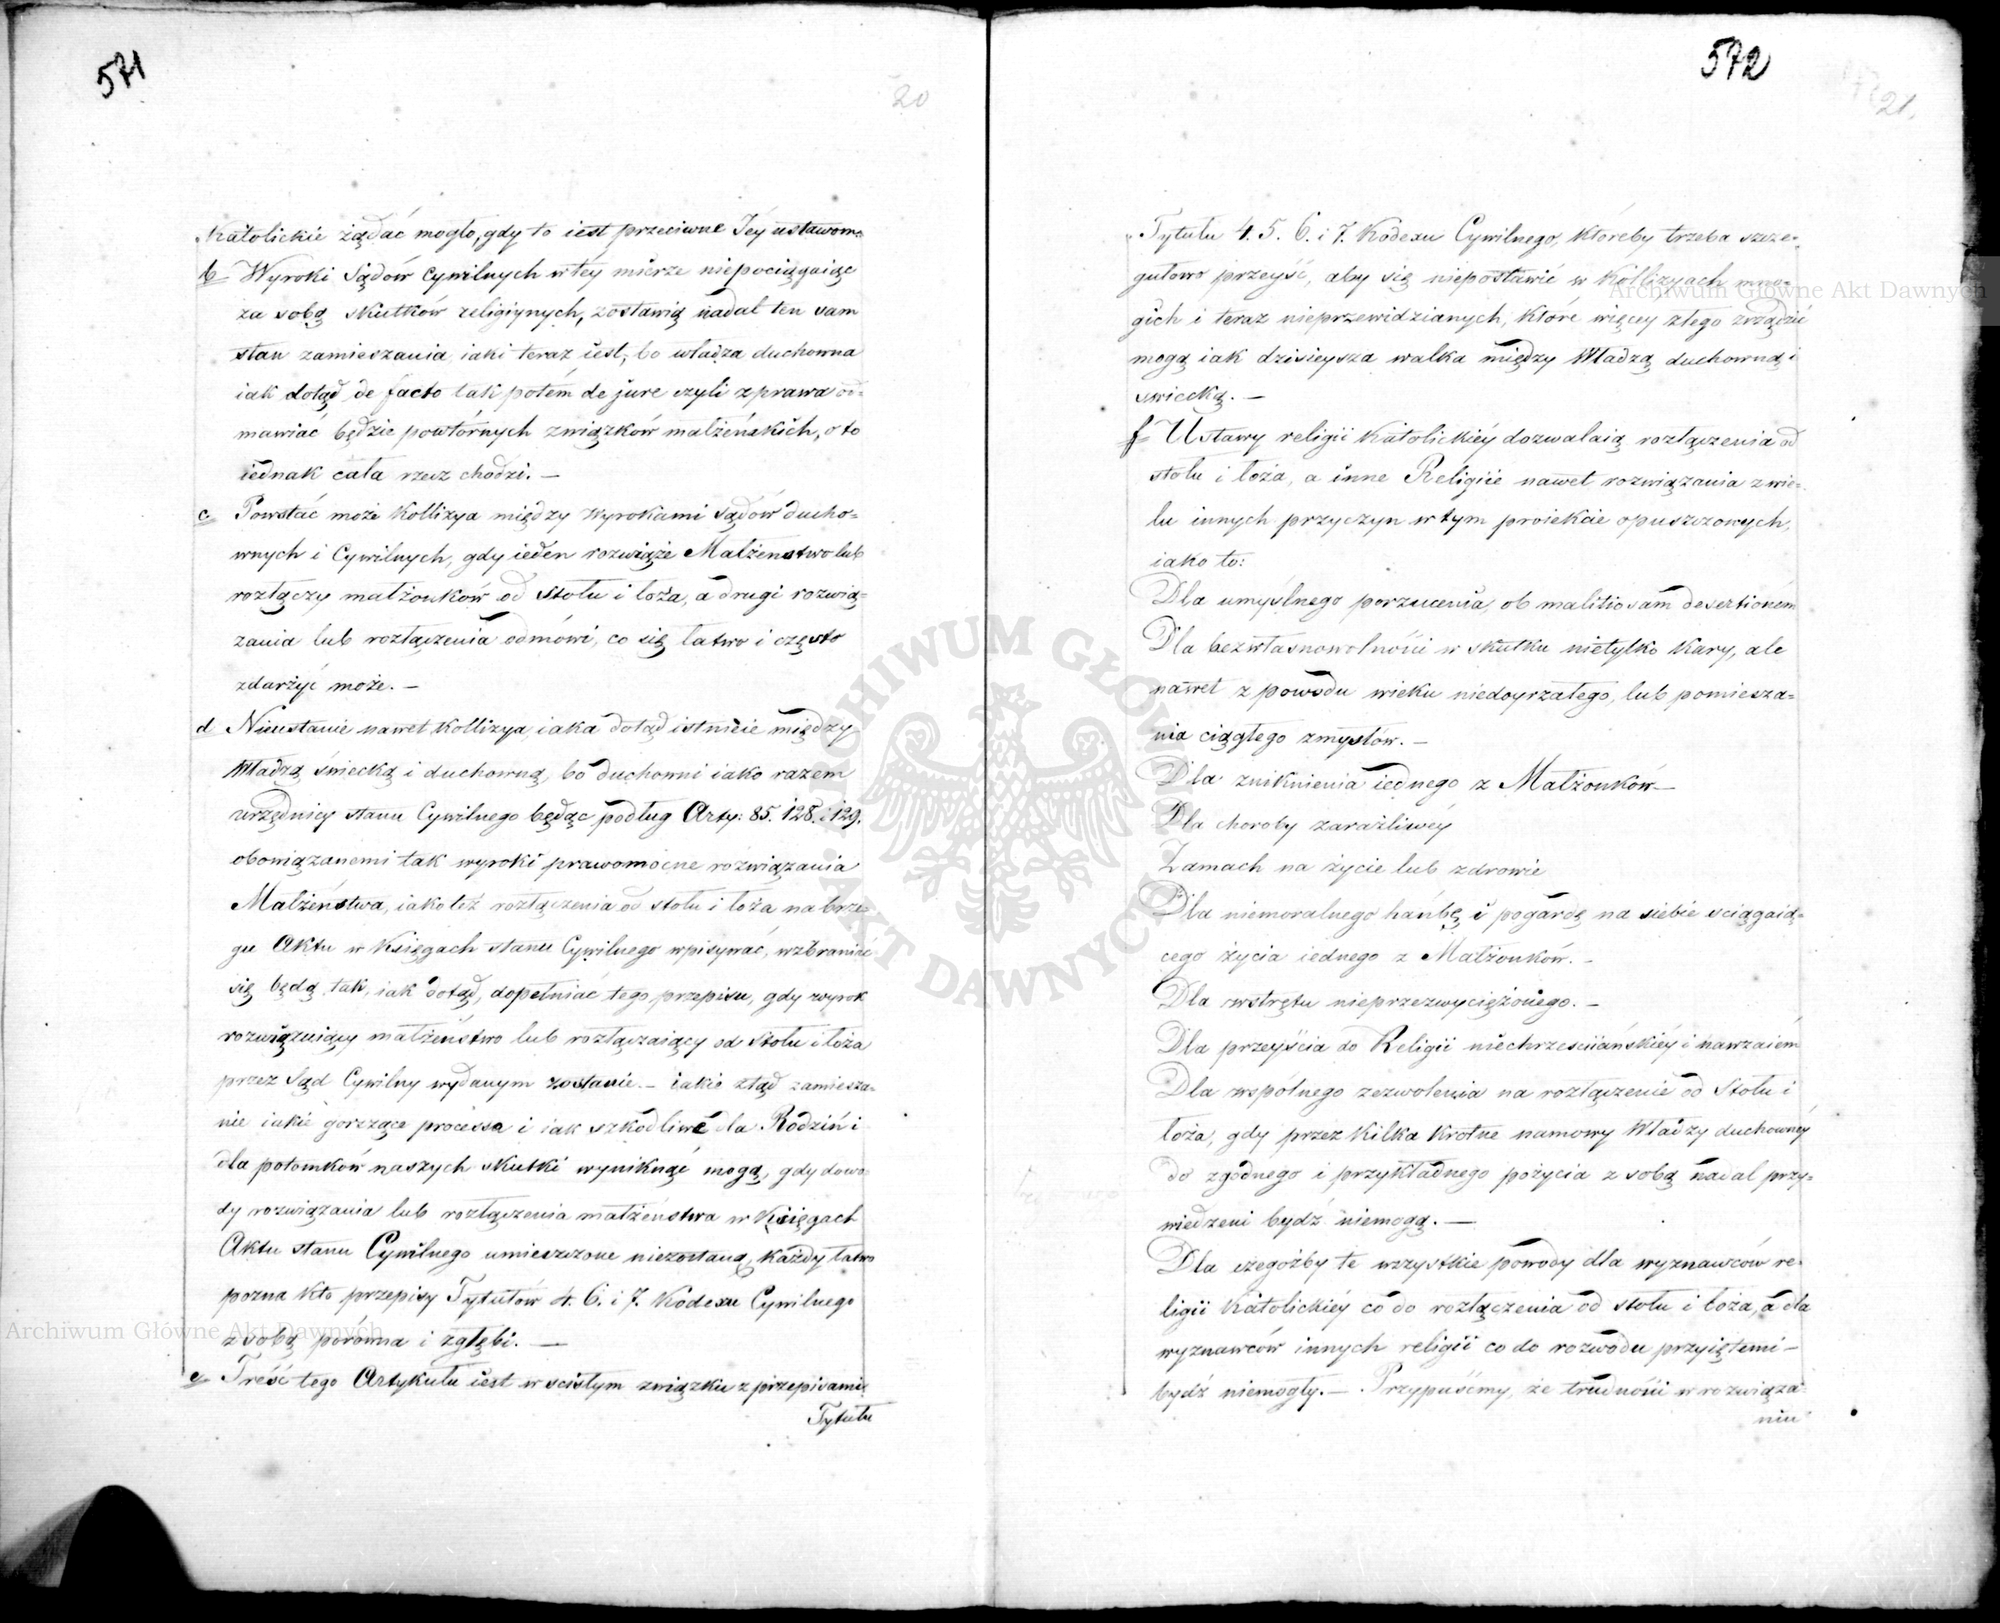 571
20
Katolickie żądać mogło, gdy to iest przeciwne Jéy ustawom.
b Wyroki Sądów Cywilnych w téy mierze niepociągaiąc
za sobą skutków religiynych, zostawią nadal ten sam
stan zamieszania iaki teraz iest, bo władza duchowna
iak dotąd de facto tak potém de jure czyli z prawa od=
mawiać będzie powtórnych związków małżeńskich, o to
iednak cała rzecz chodzi. —
c Powstać może kollizya między wyrokami Sądów ducho=
wnych i Cywilnych, gdy ieden rozwiąże Małżeństwo lub
rozłączy małżonków od stołu i łoża, a drugi rozwią=
zania lub rozłączenia odmówi, co się łatwo i często
zdarzyć może. —
d Nieustanie nawet kollizya iaka dotąd istnieie między
Władzą świecką i duchowną, bo duchowni iako razem
urzędnicy stanu Cywilnego będąc podług Arty: 85. 128. i 129.
obowiązanemi tak wyroki prawomocne rozwiązania
Małżeństwa, iako też rozłączenia od stołu i łoża na brze=
gu Aktu w Księgach stanu Cywilnego wpisywać, wzbraniać
się będą tak, iak dotąd, dopełniać tego przepisu, gdy wyrok
rozwiązuiący małżeństwo lub rozłączaiący od stołu i łoża
przez Sąd Cywilny wydanym zostanie. — iakie ztąd zamiesza=
nie iakie gorszące processa i iak szkodliwe dla Rodzin i
dla potomków naszych skutki wyniknąć mogą, gdy dowo=
dy rozwiązania lub rozłączenia małżeństwa w Księgach
Aktu stanu Cywilnego umieszczone niezostaną, każdy łatwo
pozna kto przepisy Tytułów 4. 6. i 7. Kodexu Cywilnego
z sobą porówna i zgłębi. —
e Treść tego Artykułu iest w scisłym związku z przepisami
Tytułu
572
21.
Tytułu 4. 5. 6. i 7. Kodexu Cywilnego, któreby trzeba szcze=
gułowo przeyść, aby się niepostawić w kollizyach mno=
gich i teraz nieprzewidzianych, które więcey złego zrządzić
mogą iak dzisieysza walka między Władzą duchowną i
swiecką. —
f Ustawy religii Katolickiéy dozwalaią rozłączenia od
stołu i łoża, a inne Religiie nawet rozwiązania z wie=
lu innych przyczyn w tym proiekcie opuszczonych,
iako to:
Dla umyślnego porzucenia ob malitiosam desertionem
Dla bezwłasnowolności w skutku nietylko kary, ale
nawet z powodu wieku niedoyrzałego, lub pomiesza=
nia ciągłego zmysłów. —
Dla zniknienia iednego z Małżonków —
Dla choroby zaraźliwéy
Zamach na życie lub zdrowie
Dla niemoralnego hańbę i pogardę na siebie sciągaią=
cego życia iednego z Małżonków. —
Dla wstrętu nieprzezwyciężonego. —
Dla przeyścia do Religii niechrześciiańskiéy i nawzaiem
Dla wspólnego zezwolenia na rozłączenie od Stołu i
łoża, gdy przez kilka krotne namowy Władzy duchownéy
do zgodnego i przykładnego pożycia z sobą nadal przy=
wiedzeni bydź niemogą. —
Dla czegożby te wszystkie powody dla wyznawców re=
ligii Katolickiéy co do rozłączenia od stołu i łoża, a dla
wyznawców innych religii co do rozwodu przyiętemi —
bydź niemogły. — Przypuśćmy, że trudności w rozwiąza=
niu
Archiwum Główne Akt Dawnych
Archiwum Główne Akt Dawnych
ARCHIWUM GŁÓWNE AKT DAWNYCH